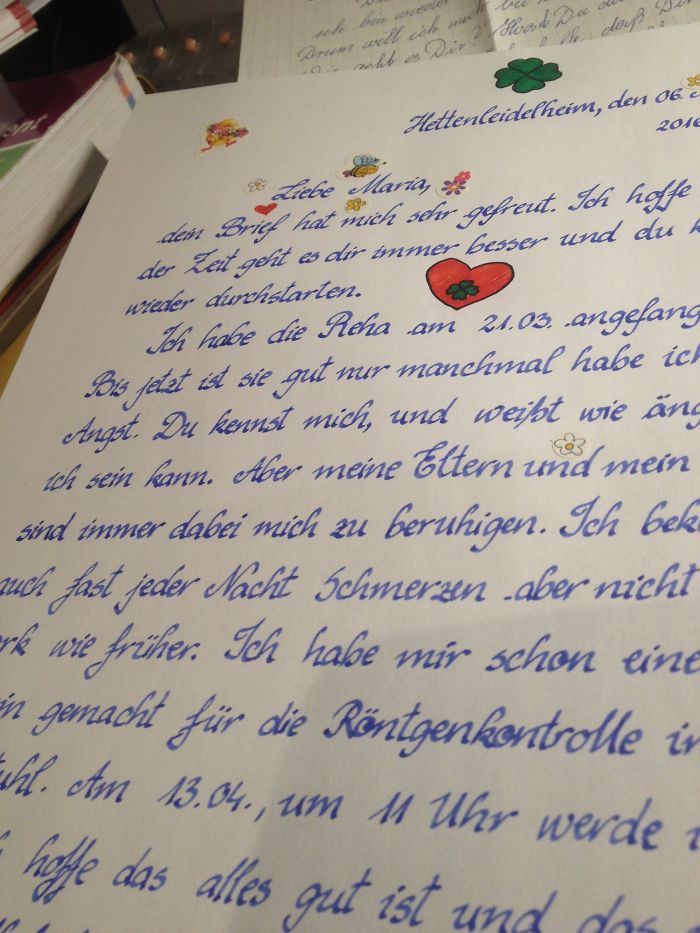 ich bin wieder
Drum will ich mich
geht es Dir? Hoast Du
daß Dir
Hettenleidelheim, den 06.
2016
Liebe Maria,
dein Brief hat mich sehr gefreut. Ich hoffe
der Zeit geht es dir immer besser und du k
wieder durchstarten.
Ich habe die Reha am 21.03. angefang
Bis jetzt ist sie gut nur manchmal habe ich
Angst. Du kennst mich, und weißt wie äng
ich sein kann. Aber meine Eltern und mein
sind immer dabei mich zu beruhigen. Ich bek
auch fast jeder Nacht Schmerzen aber nicht
rk wie früher. Ich habe mir schon eine
in gemacht für die Röntgenkontrolle in
uhl. Am 13.04., um 11 Uhr werde i
hoffe das alles gut ist und das